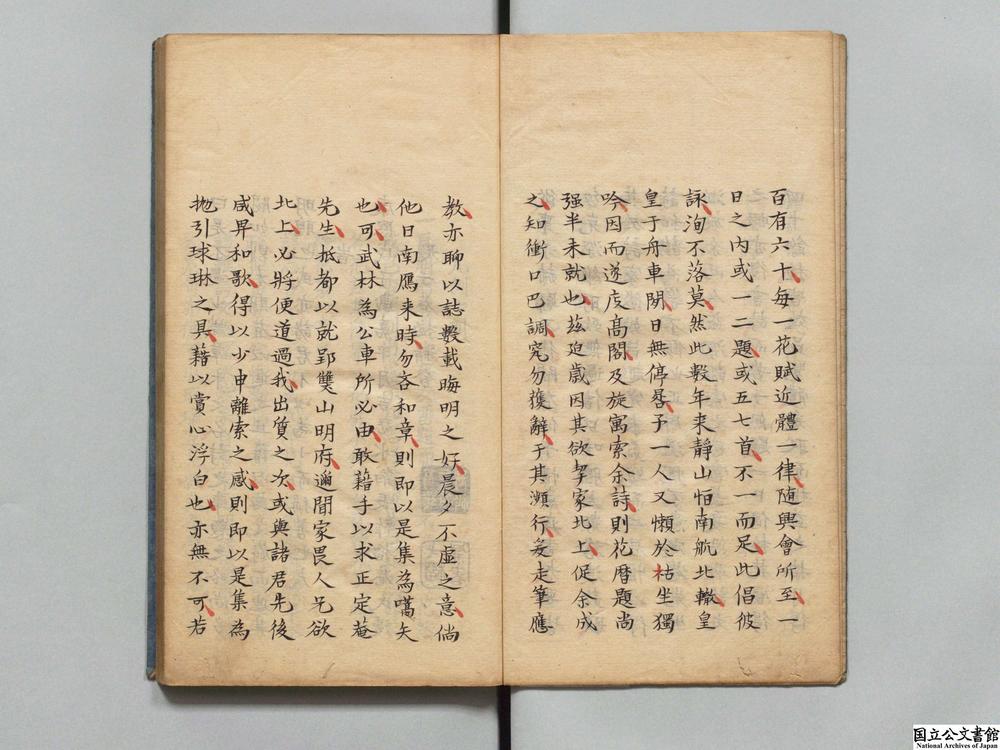 百有六十每一花賦近體一律随興會所至一
日之内或一二題或五七首不一而足此倡彼
詠洵不落莫然此數年来靜山怕南航北轍皇
皇于舟車閒日無停晷予一人又懶於枯坐獨
吟因而遂庋髙閣及旋寓索余詩則花曆題尚
强半未就也茲迫歲因其欲挈家北上促余成
之知衝口巴調究勿獲辭于其瀕行妄走筆應
教亦聊以誌數載晦明之好晨夕不虛之意倘
他日南鴈来時勿吝和章則即以是集為嚆矢
也可武林為公車所必由敢藉手以求正定菴
先生抵都以就郢雙山明府邇聞家畏人兄欲
北上必將便道過我出質之次或與諸君先後
咸畀和歌得以少申離索之感則即以是集為
抛引球琳之具藉以賞心浮白也亦無不可若
国立公文書館
National Archives of Japan